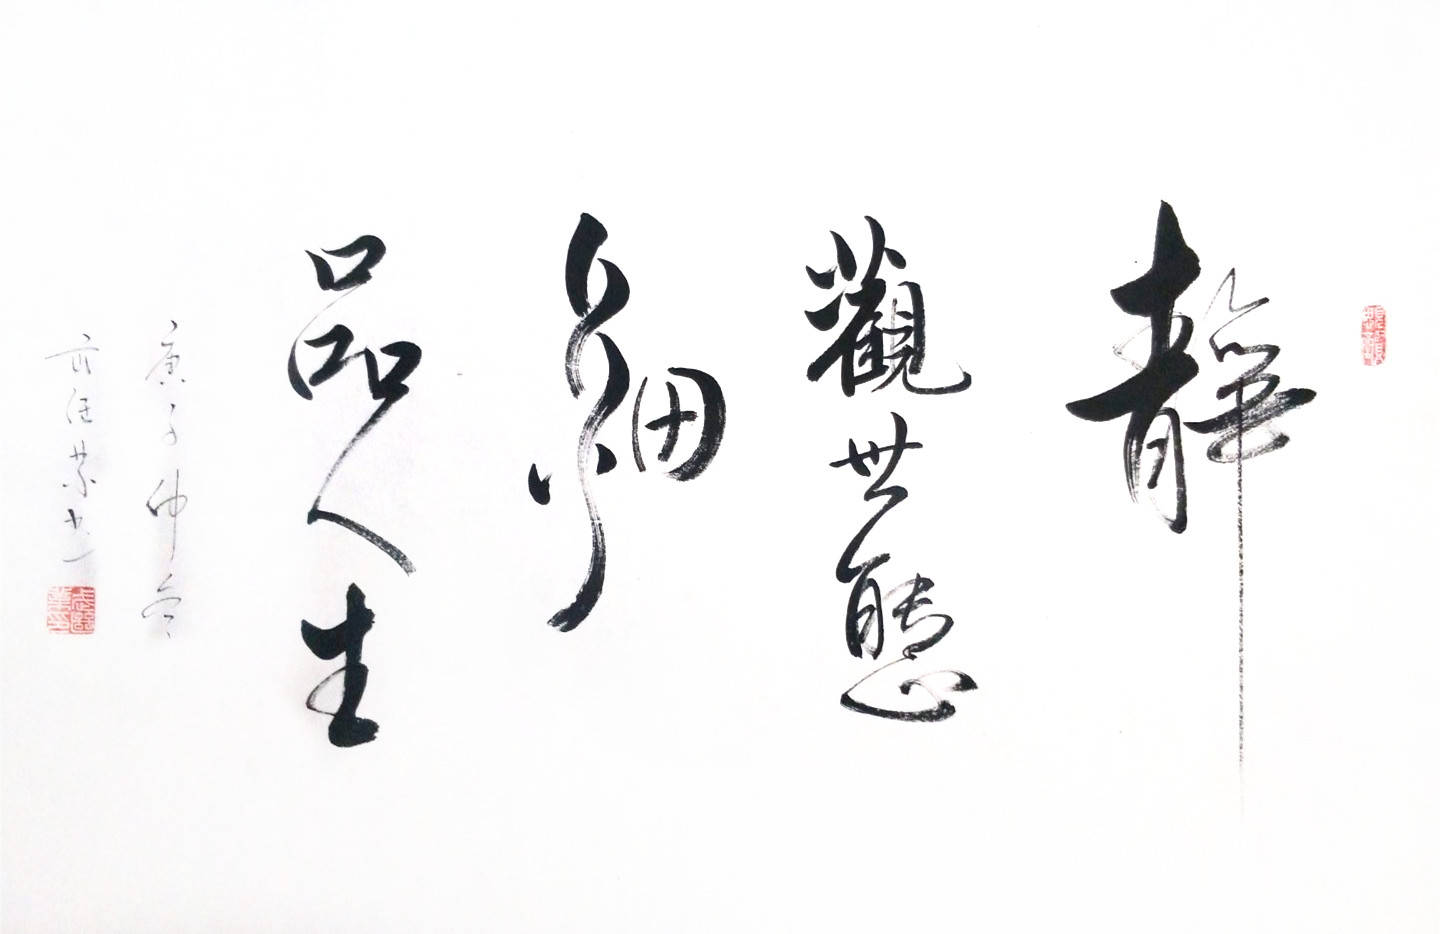 靜
觀世態
細
品人生
庚子仲冬